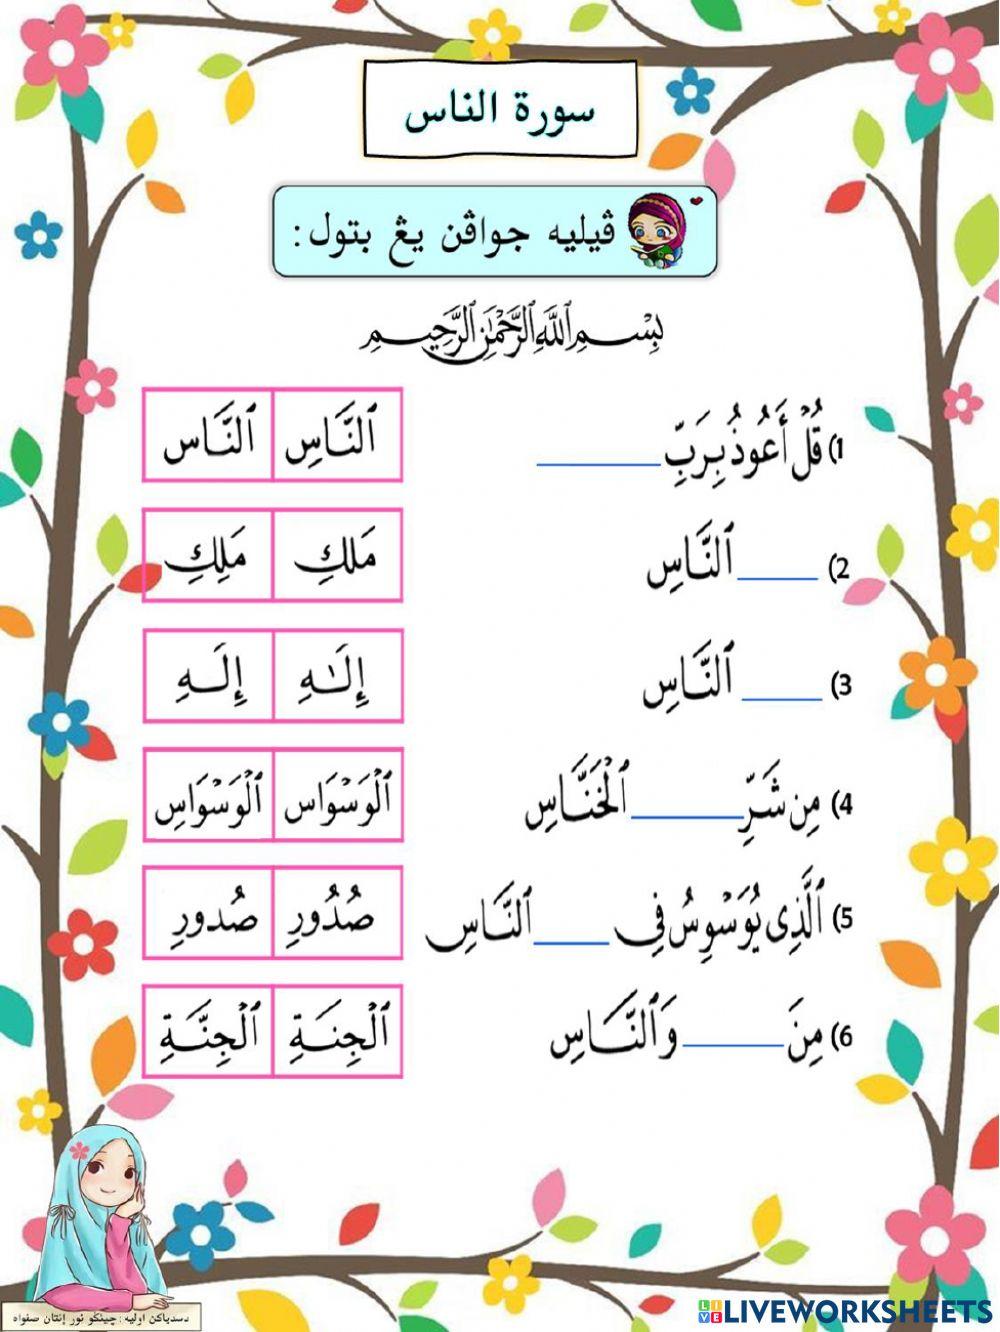 سورة الناس
ڤيليه جواڤن يڠ بتول:
بِسْمِ ٱللَّهِ ٱلرَّحْمَٰنِ ٱلرَّحِيمِ
1) قُلْ أَعُوذُ بِرَبِّ ______ ٱلنَّاسِ ٱلنَّاس
2) ______ ٱلنَّاسِ مَلكِ مَلِكِ
3) ______ ٱلنَّاسِ إِلَٰهِ إِلَهِ
4) مِن شَرِّ ______ ٱلْخَنَّاسِ ٱلْوَسْوَاس ٱلْوَسْوَاسِ
5) ٱلَّذِى يُوَسْوِسُ فِى ______ ٱلنَّاسِ صُدُورِ صُدورِ
6) مِنَ ______ وَٱلنَّاسِ ٱلْجِنَةِ ٱلْجِنَّةِ
دسدياكن اوليه : چيئكو نور إنتان صفواه
LIVEWORKSHEETS